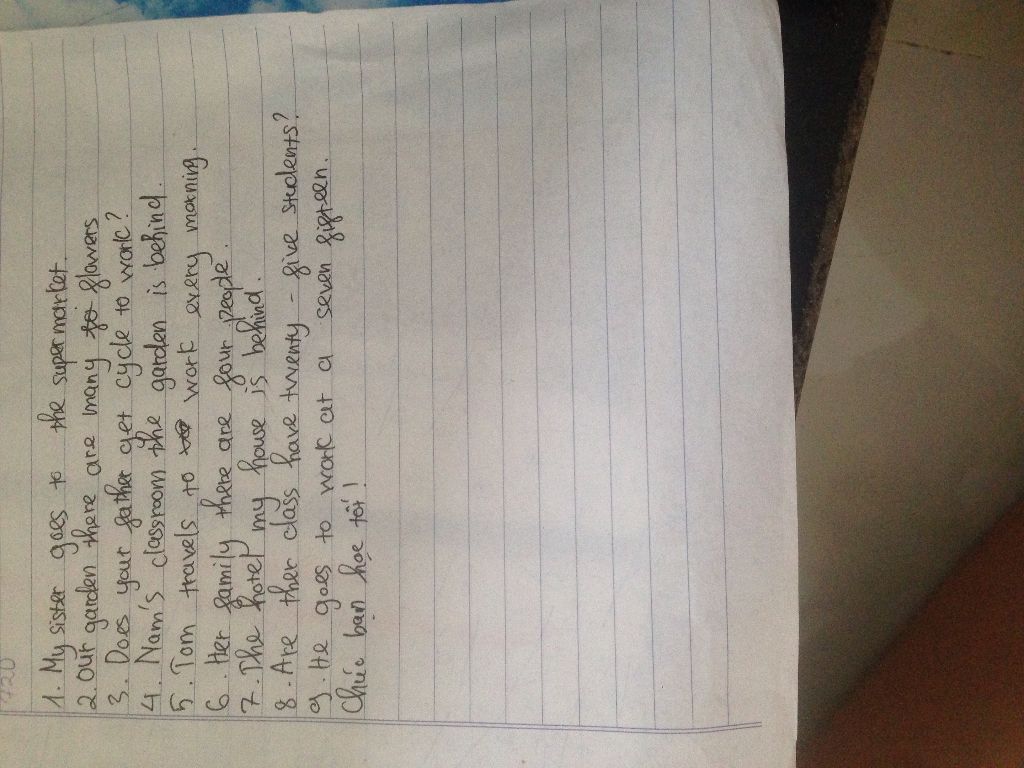 1. My sister goes to the supermarket.
2. Our garden there are many to flowers
3. Does your father get cycle to work?
4. Nam's classroom the garden is behind.
5. Tom travels to work every morning.
6. Her family there are four people.
7. The hotel my house is behind.
8. Are ther class have twenty - five students?
9. He goes to work at a seven fifteen.
Chúc bạn học tốt!